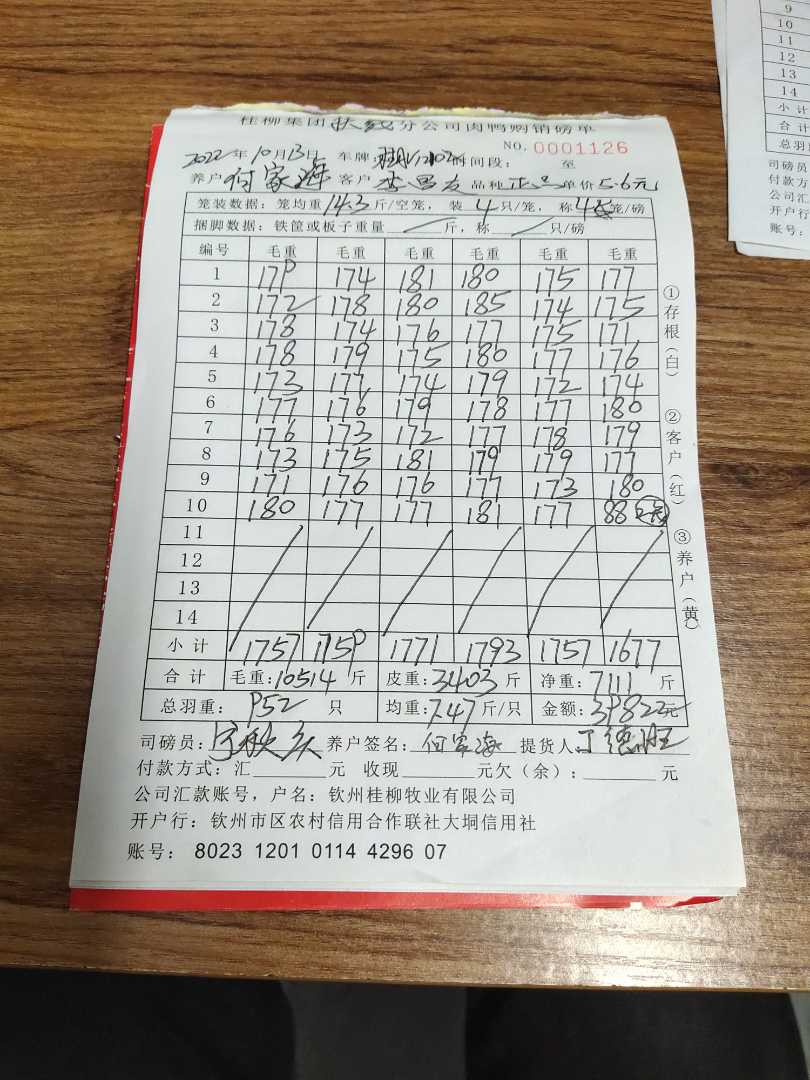 桂柳集团扶绥分公司肉鸭购销磅单
NO. 0001126
2022年10月13日 车牌: 时间段: 至
养户 何家海 客户 李昌友 品种 正品 单价5.6元
笼装数据: 笼均重14.3斤/空笼, 装4只/笼, 称4笼/磅
捆脚数据: 铁筐或板子重量 斤, 称 只/磅
编号 毛重 毛重 毛重 毛重 毛重 毛重
1 179 174 181 180 175 177
2 172 178 180 185 174 175
3 178 174 176 177 175 171
4 178 179 175 180 177 176
5 173 177 174 179 172 174
6 177 176 179 178 177 180
7 176 173 172 177 178 179
8 173 175 181 179 179 177
9 171 176 176 177 173 180
10 180 177 177 181 177 88
11
12
13
14
小计 1757 1759 1771 1793 1757 1677
合计 毛重:10514斤 皮重:3403斤 净重:7111斤
总羽重: 952只 均重:7.47斤/只 金额:39822元
司磅员: 养户签名:何家海 提货人:丁德旺
付款方式: 汇 元 收现 元欠(余): 元
公司汇款账号, 户名: 钦州桂柳牧业有限公司
开户行: 钦州市区农村信用合作联社大垌信用社
账号: 8023 1201 0114 4296 07
①存根(白)
②客户(红)
③养户(黄)
9
10
11
12
13
14
小计
合计
总羽
司磅员
付款方
公司汇
开户行
账号: